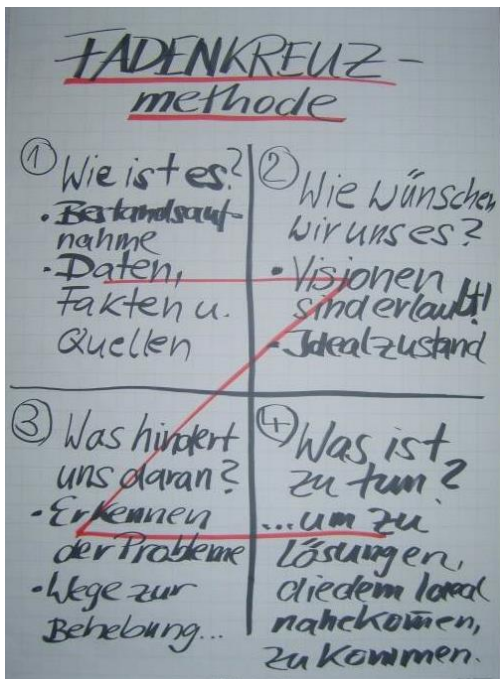 FADENKREUZ-
methode
1
Wie ist es?
• Bestandsauf-
nahme
• Daten,
Fakten u.
Quellen
2
Wie wünschen
wir uns es?
• Visionen
sind erlaubt!
• Idealzustand
3
Was hindert
uns daran?
• Erkennen
der Probleme
• Wege zur
Behebung...
4
Was ist
zu tun?
...um zu
Lösungen,
die dem Ideal
nahekom̄en,
zu kommen.